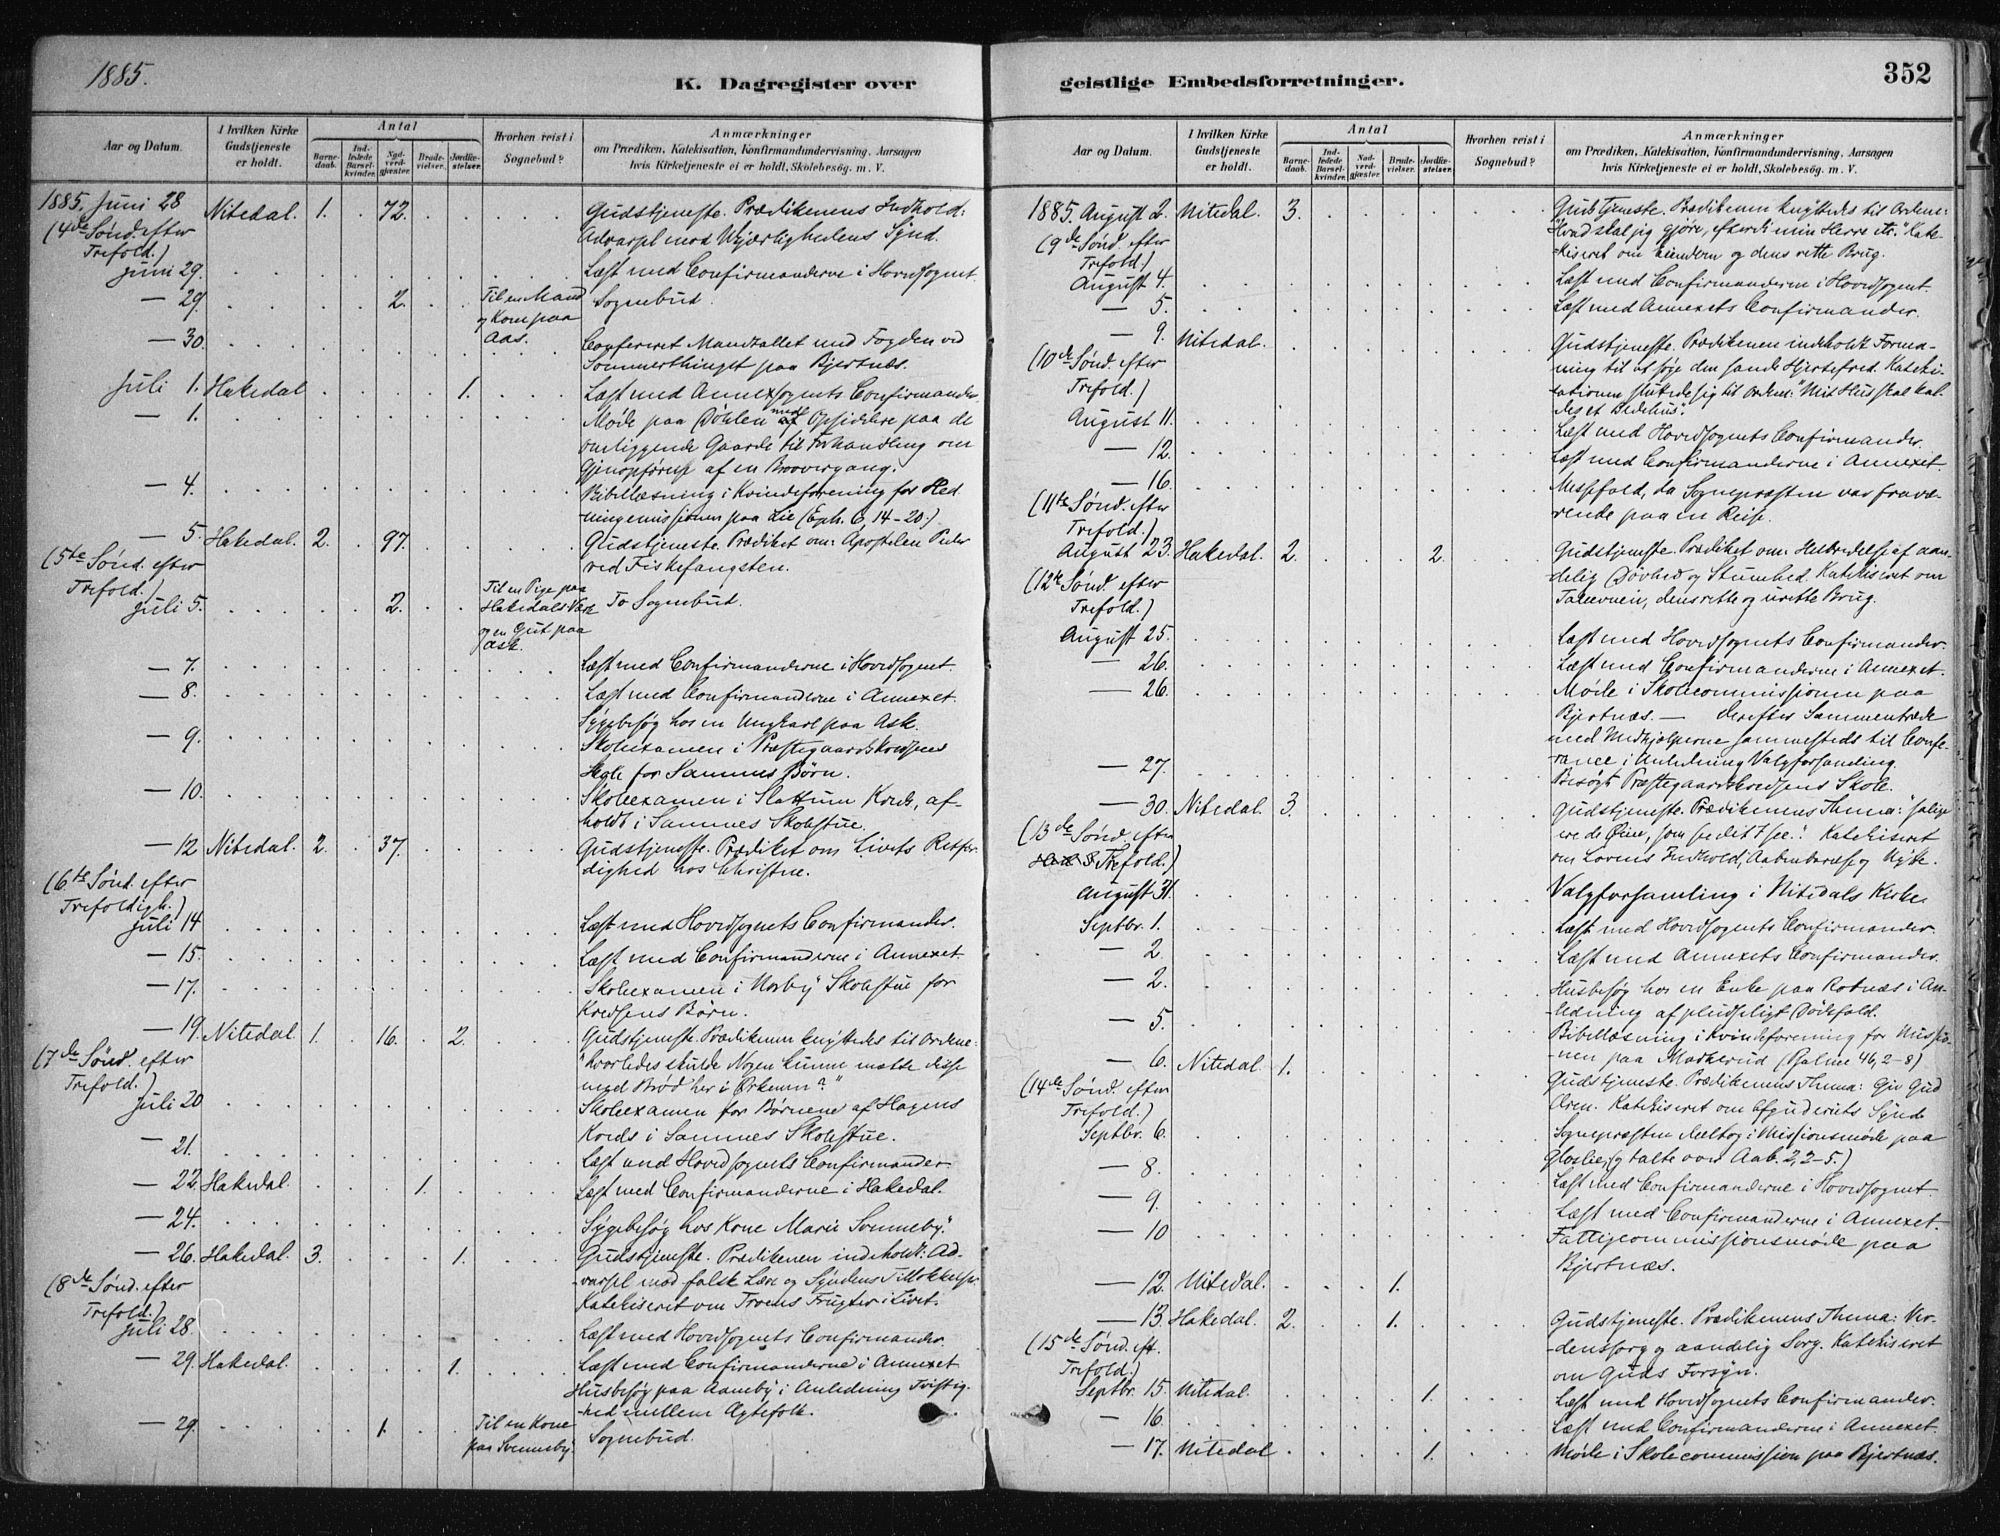 1885.
K. Dagregister over
Aar og Datum.
I hvilken Kirke
Gudstjeneste
er holdt.
Antal
Barne-
daab.
Ind-
ledede
Barsel-
kvinder.
Nad-
verd-
gjæster.
Brude-
vielser.
Jordfæ-
stelser.
Hvorhen reist i
Sognebud?
Anmærkninger
om Prædiken, Katekisation, Konfirmandundervisning, Aarsagen
hvis Kirketjeneste ei er holdt, Skolebesøg. m. V.
1885. Juni 28 Nitedal. 1. 72. Gudstjeneste. Prædikenens Indhold:
(4de Sønd. efter Advarsel mod Ukjærlighedens Synd.
Trefold.)
Juni 29. Læst med Confirmanderne i Hovedsognet.
— 29. 2. Til en Mand Sognebud.
og Kone paa
Aas.
— 30. Confereret Mandtallet med Fogden ved
Sommerthinget paa Bjertnæs.
Juli 1. Hakedal 1. Læst med Annexsognets Confirmander.
— 1. Møde paa Døhlen med Opsiddere paa de
omliggende Gaarde til Forhandling om
Gjenopførelse af en Broovergang.
— 4. Bibellæsning i Kvindeforening for Hed-
ningemissionen paa Lie (Eph. 6, 14-20.)
— 5. Hakedal. 2. 97. Gudstjeneste. Prædiket om: Apostelen Peder
(5te Sønd. efter ved Fiskefangsten.
Trefold.)
Juli 5. 2. Til en Pige paa
Hakedals Værk To Sognebud.
og en Gut paa
Ask.
— 7. Læst med Confirmanderne i Hovedsognet.
— 8. Læst med Confirmanderne i Annexet.
Sygebesøg hos en Ungkarl paa Ask.
— 9. Skoleexamen i Præstegaardskredsens
Skole for Sammes Børn.
— 10. Skoleexamen i Slattum Kreds, af-
holdt i Sammes Skolestue.
— 12 Nitedal. 2. 37. Gudstjeneste. Prædiket om Livets Retfær-
(6te Sønd. efter dighed hos Christne.
Trefoldigh.)
Juli 14 Læst med Hovedsognets Confirmander.
— 15. Læst med Confirmanderne i Annexet.
— 17. Skoleexamen i Norby Skolestue for
Kredsens Børn.
— 19. Nitedal. 1. 16. 2. Gudstjeneste. Prædikenen knyttedes til Ordene:
(7de Sønd. efter "hvorledes skulde Nogen kunne mætte disse
Trefold.) med Brød her i Ørkenen?"
Juli 20 Skoleexamen for Børnene af Hagens
Kreds i Sammes Skolestue.
— 21. Læst med Hovedsognets Confirmander.
— 22. Hakedal. 1. Læst med Confirmanderne i Hakedal.
— 24. Sygebesøg hos Kone Marie Sonneby.
— 26. Hakedal. 3. 1. Gudstjeneste. Prædikenen indeholdt: Ad-
(8de Sønd. efter varsel mod falsk Lære og Syndens Tillokkelser.
Trefold.) Katekiseret om Troens Frugter i Livet.
Juli 28. Læst med Hovedsognets Confirmander.
— 29. Hakedal. 1. Læst med Confirmanderne i Annexet
Husbesøg paa Aaneby i Anledning Tvistig-
hed mellem Ægtefolk.
— 29. 1. Til en Kone Sognebud.
paa Sonneby.
geistlige Embedsforretninger.
352
Aar og Datum.
I hvilken Kirke
Gudstjeneste
er holdt.
Antal
Barne-
daab.
Ind-
ledede
Barsel-
kvinder.
Nad-
verd-
gjæster.
Brude-
vielser.
Jordfæ-
stelser.
Hvorhen reist i
Sognebud?
Anmærkninger
om Prædiken, Katekisation, Konfirmandundervisning, Aarsagen
hvis Kirketjeneste ei er holdt, Skolebesøg. m. V.
1885. August 2. Nitedal. 3. Gudstjeneste. Prædikenen knyttedes til Ordene:
(9de Sønd. efter "Hvad skal jeg gjøre, efterdi min Herre etc." Kate-
Trefold.) kiseret om Eiendom og dens rette Brug.
August 4. Læst med Confirmanderne i Hovedsognet.
— 5. Læst med Annexets Confirmander.
— 9. Nitedal. Gudstjeneste. Prædikenen indeholdt Forma-
(10de Sønd. efter ning til at søge den sande Hjertefred. Kateki-
Trefold.) sationen sluttede sig til Ordene: "Mit Hus skal kal-
des et Bedehus."
August 11. Læst med Hovedsognets Confirmander.
— 12. Læst med Confirmanderne i Annexet.
— 16. Messefald, da Sognepræsten var fravæ-
(11te Sønd. efter rende paa en Reise.
Trefold.)
August 23. Hakedal. 2. 2. Gudstjeneste. Prædiket om: Helbredelse af aan-
(12te Sønd. efter delig Døvhed og Stumhed. Katekiseret om
Trefold.) Taleevnen, dens rette og urette Brug.
August 25. Læst med Hovedsognets Confirmander.
— 26. Læst med Confirmanderne i Annexet.
— 26. Møde i Skolecommissionen paa
Bjertnæs. — derefter Sammentræde
med Medhjælperne sammesteds til Confe-
rance i Anledning Valgforsamling.
— 27. Besøgt Præstegaardskredsens Skole.
— 30. Nitedal. 3. Gudstjeneste. Prædikenens Thema: "salige
(13de Sønd. efter ere de Øine, som se det I see." Katekiseret
Trefold.) om Lovens Indhold, Aabenbarelse og Nytte.
August 31. Valgforsamling i Nitedals Kirke.
Septbr. 1. Læst med Hovedsognets Confirmander.
— 2. Læst med Annexets Confirmander.
— 2. Husbesøg hos en Enke paa Rotnæs i An-
ledning af pludseligt Dødsfald.
— 5. Bibellæsning i Kvindeforening for Missio-
nen paa Markerud (Psalme 46, 2-8)
— 6. Nitedal. 1. Gudstjeneste. Prædikenens Thema: Giv Gud
(14de Sønd. efter Æren. Katekiseret om Afguderiets Synd.
Trefold.)
Septbr. 6. Sognepræsten deeltog i Missionsmøde paa
og talte over Aab. 2, 2-5.)
— 8. Læst med Confirmanderne i Hovedsognet.
— 9. Læst med Confirmanderne i Annexet.
— 10 Fattigcommissionsmøde paa
Bjertnæs.
— 12. Nitedal. 1.
— 13. Hakedal. 2. 1. Gudstjeneste. Prædikenens Thema: Ver-
(15de Sønd. eft. denssorg og aandelig Sorg. Katekiseret
Trefold.) om Guds Forsyn.
Septbr. 15. Nitedal. 1. Læst med Hovedsognets Confirmander.
— 16. Læst med Confirmanderne i Annexet.
— 17. Nitedal 1. Møde i Skolecommission paa Bjertnæs.